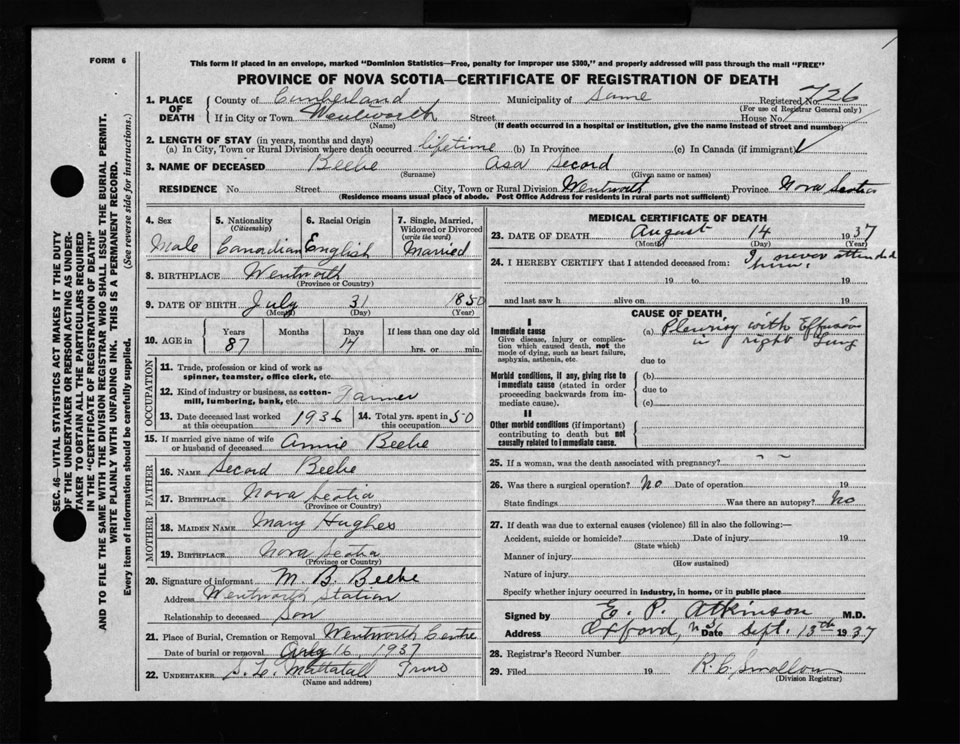 FORM 6
This form if placed in an envelope, marked "Dominion Statistics—Free, penalty for improper use $300," and properly addressed will pass through the mail "FREE"
PROVINCE OF NOVA SCOTIA—CERTIFICATE OF REGISTRATION OF DEATH
1. PLACE OF DEATH
County of Cumberland Municipality of Same Registered No. 726
(For use of Registrar General only)
If in City or Town Wentworth Street House No.
(Name) (If death occurred in a hospital or institution, give the name instead of street and number)
2. LENGTH OF STAY (in years, months and days)
(a) In City, Town or Rural Division where death occurred lifetime (b) In Province (c) In Canada (if immigrant)
3. NAME OF DECEASED Beebe Asa Secord
(Surname) (Given name or names)
RESIDENCE No. Street City, Town or Rural Division Wentworth Province Nova Scotia
(Residence means usual place of abode. Post Office Address for residents in rural parts not sufficient)
4. Sex
Male
5. Nationality
(Citizenship)
Canadian
6. Racial Origin
English
7. Single, Married,
Widowed or Divorced
(write the word)
Married
8. BIRTHPLACE Wentworth
(Province or Country)
9. DATE OF BIRTH July 31 1850
(Month) (Day) (Year)
10. AGE in
Years Months Days If less than one day old
87 14 hrs. or min.
OCCUPATION
11. Trade, profession or kind of work as
spinner, teamster, office clerk, etc.
12. Kind of industry or business, as cotton-
mill, lumbering, bank, etc. Farmer
13. Date deceased last worked
at this occupation 1936
14. Total yrs. spent in
this occupation 50
15. If married give name of wife
or husband of deceased Annie Beebe
FATHER
16. NAME Secord Beebe
17. BIRTHPLACE Nova Scotia
(Province or Country)
MOTHER
18. MAIDEN NAME Mary Hughes
19. BIRTHPLACE Nova Scotia
(Province or Country)
20. Signature of informant M. B. Beebe
Address Wentworth Station
Relationship to deceased Son
21. Place of Burial, Cremation or Removal Wentworth Centre
Date of burial or removal Aug 16, 1937
22. UNDERTAKER S. L. Mattatall Truro
(Name and address)
MEDICAL CERTIFICATE OF DEATH
23. DATE OF DEATH August 14 1937
(Month) (Day) (Year)
24. I HEREBY CERTIFY that I attended deceased from: I never attended
him.
19 to 19
and last saw h alive on 19
CAUSE OF DEATH
I
Immediate cause
Give disease, injury or complica-
tion which caused death, not the
mode of dying, such as heart failure,
asphyxia, asthenia, etc.
(a) Pleurisy with Effusion
in right lung
due to
Morbid conditions, if any, giving rise to
immediate cause (stated in order
proceeding backwards from im-
mediate cause).
(b)
due to
(c)
II
Other morbid conditions (if important)
contributing to death but not
causally related to immediate cause.
25. If a woman, was the death associated with pregnancy?
26. Was there a surgical operation? No Date of operation 19
State findings Was there an autopsy? No
27. If death was due to external causes (violence) fill in also the following:—
Accident, suicide or homicide? Date of injury 19
(State which)
Manner of injury
(How sustained)
Nature of injury
Specify whether injury occurred in industry, in home, or in public place
Signed by E. P. Atkinson M.D.
Address Oxford, N.S. Date Sept. 13th 1937
28. Registrar's Record Number
29. Filed 19 R. C. Smallom
(Division Registrar)
SEC. 46—VITAL STATISTICS ACT MAKES IT THE DUTY
OF THE UNDERTAKER OR PERSON ACTING AS UNDER-
TAKER TO OBTAIN ALL THE PARTICULARS REQUIRED
IN THE "CERTIFICATE OF REGISTRATION OF DEATH"
AND TO FILE THE SAME WITH THE DIVISION REGISTRAR WHO SHALL ISSUE THE BURIAL PERMIT.
WRITE PLAINLY WITH UNFADING INK. THIS IS A PERMANENT RECORD.
Every item of information should be carefully supplied. (See reverse side for instructions.)